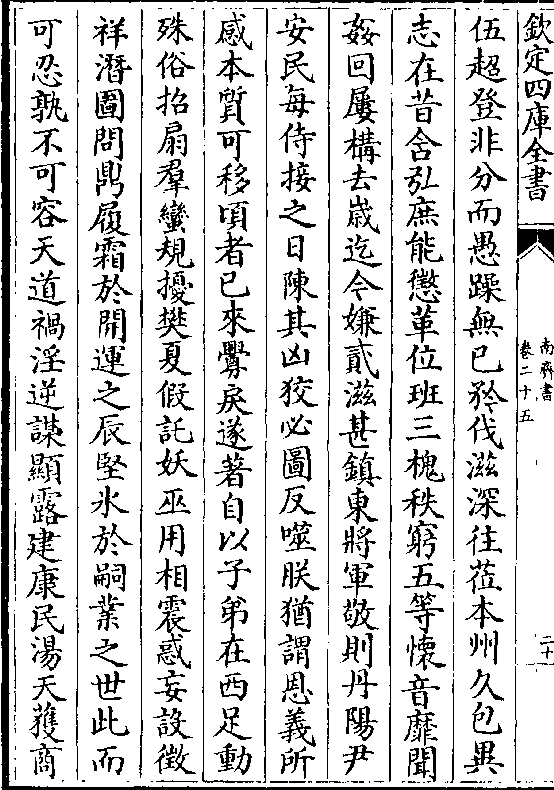 欽定四庫全書
南齊書
卷二十五
二十
伍超登非分而愚躁無已矜伐滋深往莅本州久包異
志在昔含弘庶能懲革位班三槐秩窮五等懷音靡聞
姦回屢構去嵗迄今嫌貳滋甚鎮東將軍敬則丹陽尹
安民每侍接之日陳其凶狡必圖反噬朕猶謂恩義所
感本質可移頃者已來釁戾遂著自以子弟在西足動
殊俗招扇羣蠻規擾樊夏假託妖巫用相震惑妄設徵
祥潛圖問鼎履霜於開運之辰堅氷於嗣業之世此而
可忍孰不可容天道禍淫逆謀顯露建康民湯天獲商